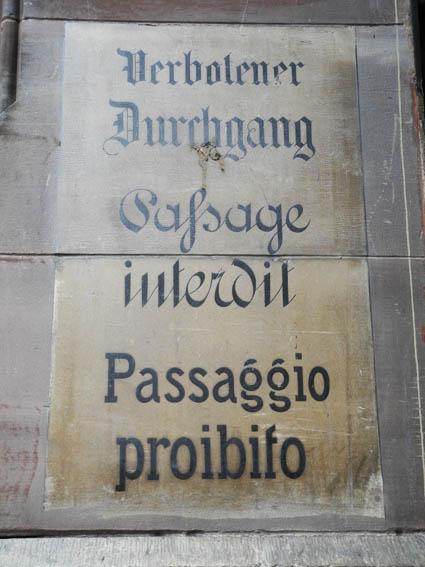 Verbotener
Durchgang
Paſsage
interdit
Passaggio
proibito